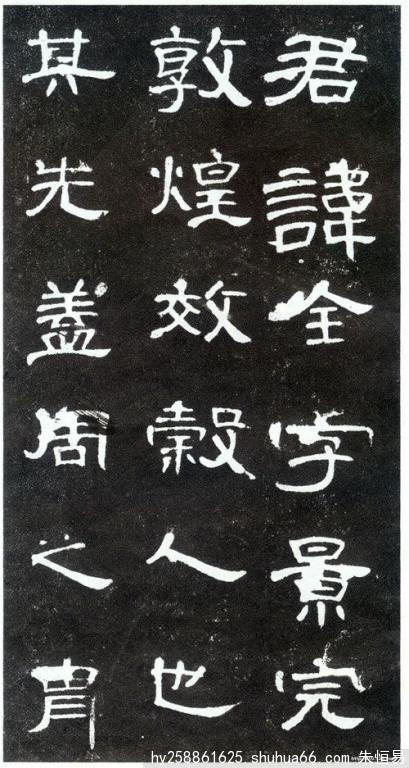 君諱全字景完
敦煌效穀人也
其先蓋周之冑
hv258861625.shuhua66.com 朱恒易